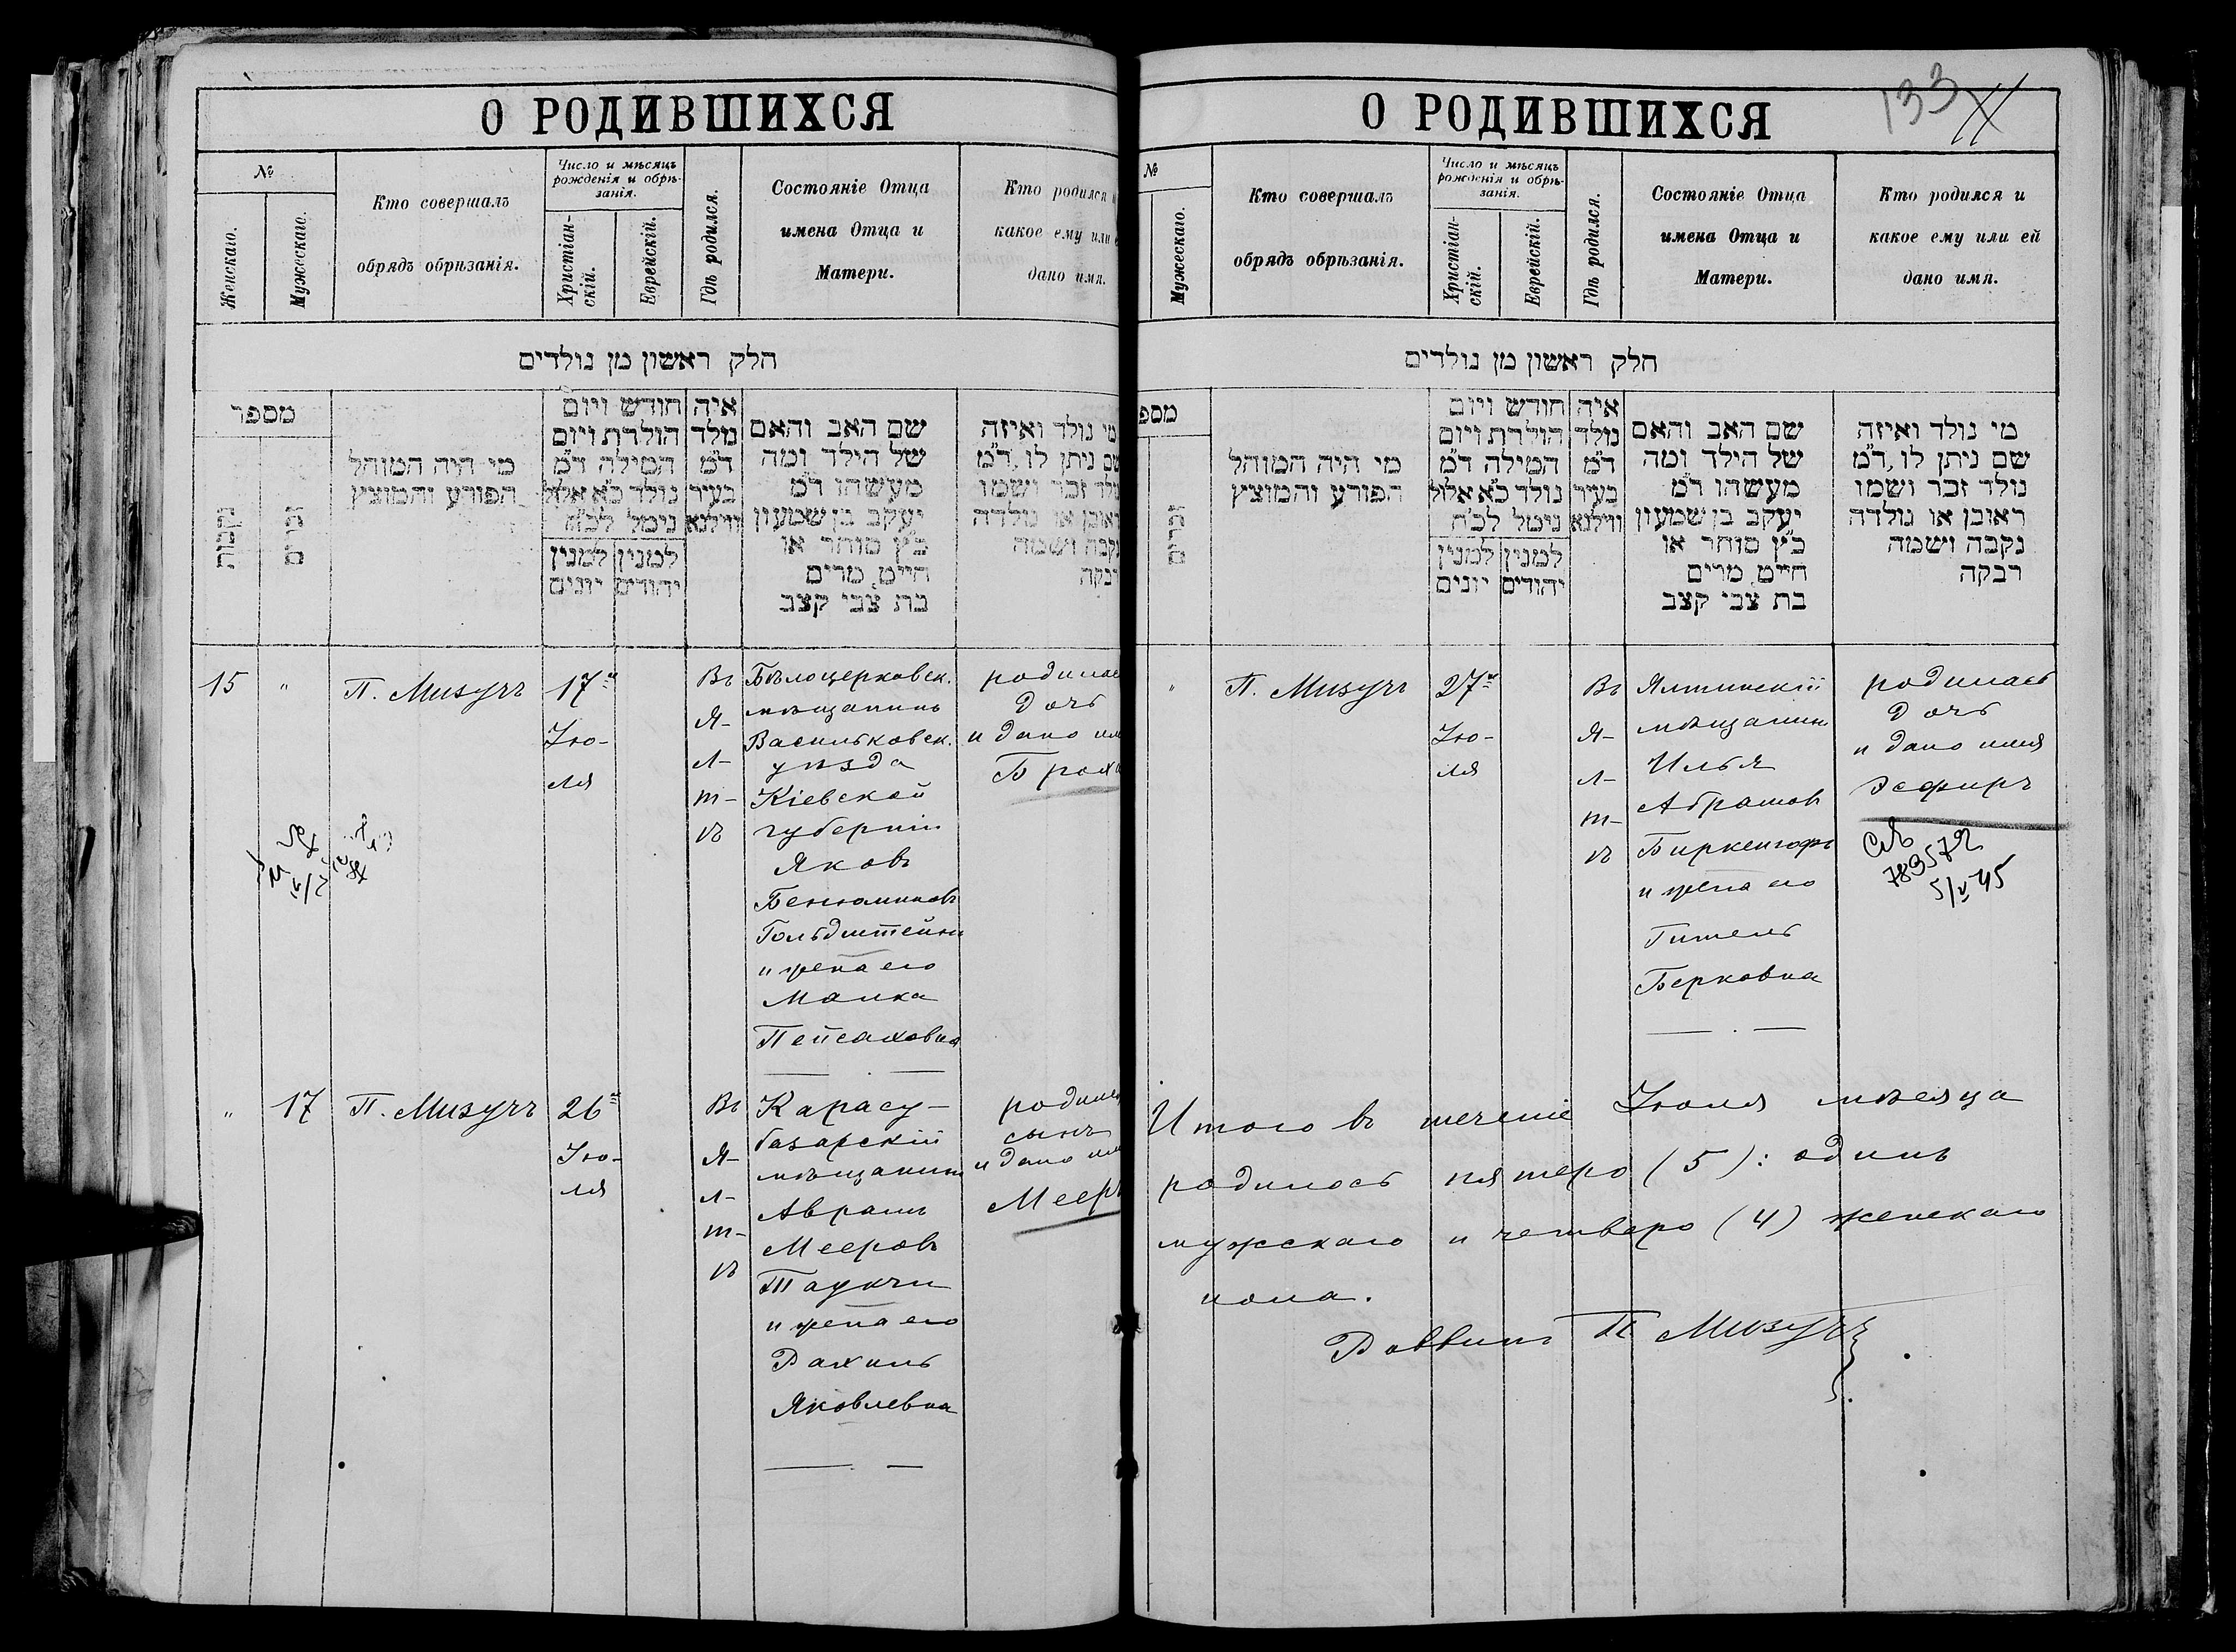 О РОДИВШИХСЯ
№
Женскаго.
Мужескаго.
Кто совершалъ
обрядъ обрѣзанія.
Число и мѣсяцъ
рожденія и обрѣ-
занія.
Христіан-
скій.
Еврейскій.
Гдѣ родился.
Состояніе Отца
имена Отца и
Матери.
Кто родился и
какое ему или
дано имя.
חלק ראשון מן נולדים
מספר
נקבות
זכרים
מי היה המוהל
הפורע והמוצץ
חודש ויום
הולדת ויום
המילה ד״מ
נולד כ״א אלול
נימל לכ״ח
למנין
יונים
למנין
יהודים
איה
נולד
ד״מ
בעיר
ווילנא
שם האב והאם
של הילד ומה
מעשהו ד״מ
יעקב בן שמעון
כ״ץ סוחר או
חייט מרים
בת צבי קצב
מי נולד ואיזה
שם ניתן לו ד״מ
נולד זכר ושמו
ראובן או נולדה
נקבה ושמה
15 "
П. Мизучъ
17го
Iю-
ля
Въ
Я-
л-
т-
ѣ
Бѣлоцерковск.
мѣщанинъ
Васильковск.
уѣзда
Кіевской
губерніи
Яковъ
Бенюминовъ
Гольдштейнъ
и жена его
Малка
Пейсаховна
родилась
дочь
и дано имя
Броха
" 17
П. Мизучъ
26го
Iю-
ля
Въ
Я-
л-
т-
ѣ
Карасу-
базарскій
мѣщанинъ
Аврамъ
Мееровъ
Таукчи
и жена его
Рахиль
Яковлевна
родился
сынъ
и дано имя
Мееръ
133
О РОДИВШИХСЯ
№
Мужескаго.
Кто совершалъ
обрядъ обрѣзанія.
Число и мѣсяцъ
рожденія и обрѣ-
занія.
Христіан-
скій.
Еврейскій.
Гдѣ родился.
Состояніе Отца
имена Отца и
Матери.
Кто родился и
какое ему или ей
дано имя.
חלק ראשון מן נולדים
מספ
זכרים
מי היה המוהל
הפורע והמוצץ
חודש ויום
הולדת ויום
המילה ד״מ
נולד כ״א אלול
נימל לכ״ח
למנין
יונים
למנין
יהודים
איה
נולד
ד״מ
בעיר
ווילנא
שם האב והאם
של הילד ומה
מעשהו ד״מ
יעקב בן שמעון
כ״ץ סוחר או
חייט מרים
בת צבי קצב
מי נולד ואיזה
שם ניתן לו ד״מ
נולד זכר ושמו
ראובן או נולדה
נקבה ושמה
רבקה
"
П. Мизучъ
27го
Iю-
ля
Въ
Я-
л-
т-
ѣ
Ялтинскій
мѣщанин
Илья
Абрамов
Биркенгофъ
и жена его
Гитель
Берковна
родилась
дочь
и дано имя
Эсфирь
5/V 45
Итого въ теченіе Iюля мѣсяца
родилось пятеро (5): одинъ
мужскаго и четверо (4) женскаго
пола.
Раввинъ П Мизучъ